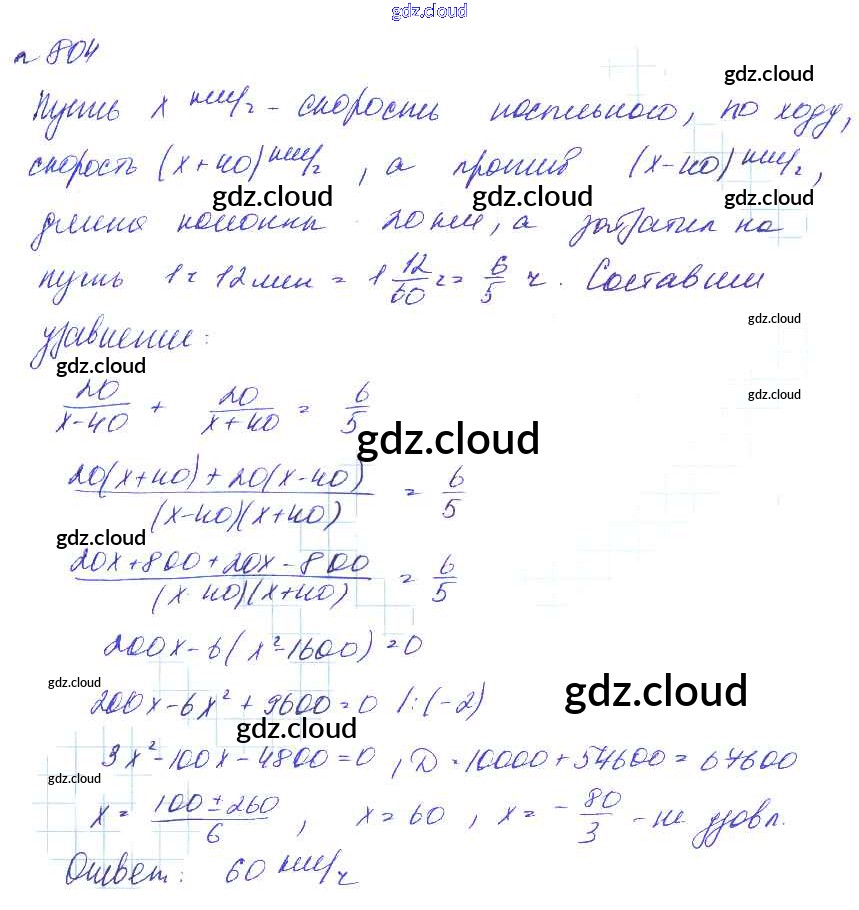 gdz.cloud
n 804
gdz.cloud
Пусть x км/ч - скорость посыльного, по ходу,
скорость (x+40) км/ч, а против (x-40) км/ч,
gdz.cloud gdz.cloud
длина колонны 20 км, а затратил на
путь 1ч 12 мин = 1 12/60 ч = 6/5 ч. Составим
gdz.cloud
уравнение:
gdz.cloud
20/(x-40) + 20/(x+40) = 6/5
gdz.cloud
gdz.cloud
(20(x+40)+20(x-40))/((x-40)(x+40)) = 6/5
gdz.cloud
(20x+800+20x-800)/((x 40)(x+40)) = 6/5
200x-6(x²-1600)=0
gdz.cloud
gdz.cloud
200x-6x²+9600=0 /:(-2)
gdz.cloud
3x²-100x-4800=0, D=10000+57600=67600
gdz.cloud
x = (100±260)/6, x=60, x= -80/3 - не удовл.
Ответ: 60 км/ч